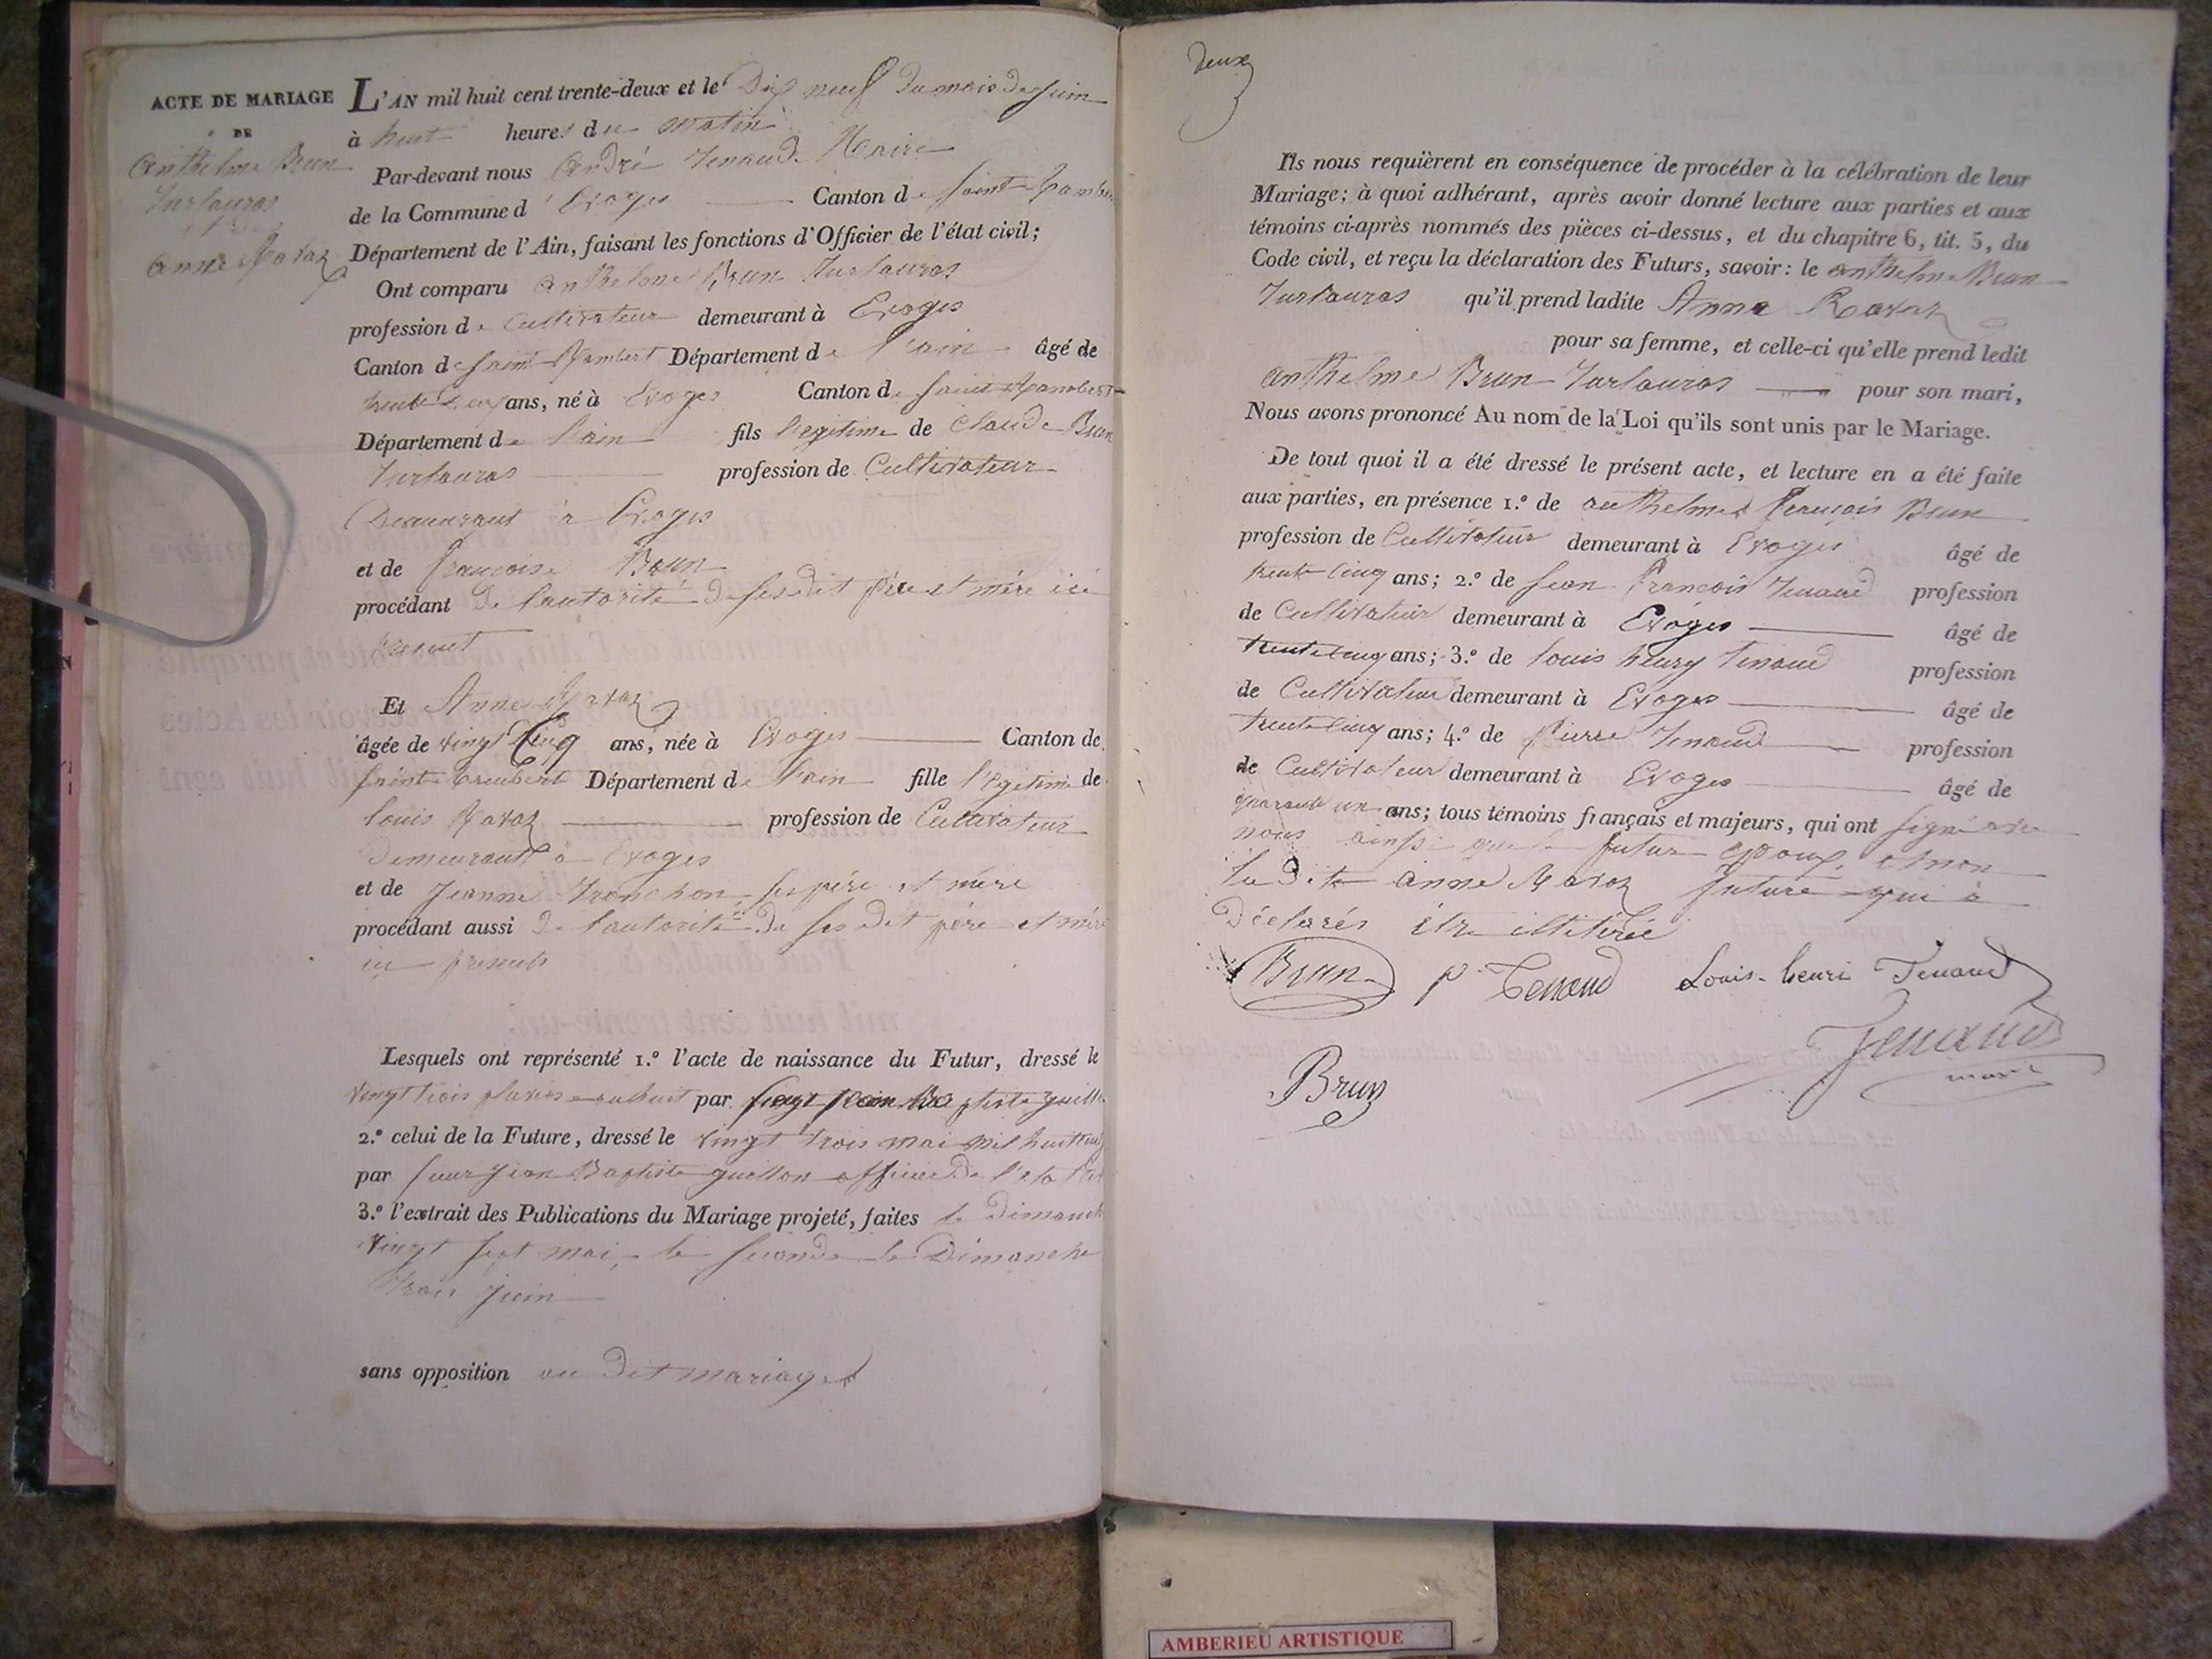 ACTE DE MARIAGE
DE
Anthelme Brun
Turlauras
et de
Anne Ravaz
L'AN mil huit cent trente-deux et le Dix neuf du mois de juin
à huit heures du matin
Par-devant nous André Tenaud Maire
de la Commune d'Evoges Canton de saint Rambert
Département de l'Ain, faisant les fonctions d'Officier de l'état civil;
Ont comparu anthelme Brun Turlauras
profession de Cultivateur demeurant à Evoges
Canton de saint Rambert Département de l'ain âgé de
trente deux ans, né à Evoges Canton de saint Rambert
Département de l'ain fils legitime de Claude Brun
Turlauras profession de Cultivateur
Demeurant à Evoges
et de françoise Brun
procédant de l'autorité de ses dit père et mère ici
present
Et Anne Ravaz
âgée de vingt Cinq ans, née à Evoges Canton de
saint Rambert Département de l'ain fille légitime de
louis Ravaz profession de Cultivateur
Demeurant à Evoges
et de Jeanne Tronchon, ses père et mère
procédant aussi de l'autorité de ses dit père et mère
ici presents
Lesquels ont représenté 1.º l'acte de naissance du Futur, dressé le
vingt trois pluviose an huit par Baptiste
2.º celui de la Future, dressé le vingt trois mai mil huit
par Jean Baptiste guillon officier de l'etat
3.º l'extrait des Publications du Mariage projeté, faites le dimanche
vingt sept mai, la seconde le Dimanche
trois juin
sans opposition au dit mariage
Deux
Ils nous requièrent en conséquence de procéder à la célébration de leur
Mariage; à quoi adhérant, après avoir donné lecture aux parties et aux
témoins ci-après nommés des pièces ci-dessus, et du chapitre 6, tit. 5, du
Code civil, et reçu la déclaration des Futurs, savoir: le anthelme Brun
Turlauras qu'il prend ladite Anne Ravaz
pour sa femme, et celle-ci qu'elle prend ledit
anthelme Brun Turlauras pour son mari,
Nous avons prononcé Au nom de la Loi qu'ils sont unis par le Mariage.
De tout quoi il a été dressé le présent acte, et lecture en a été faite
aux parties, en présence 1.º de anthelme françois Brun
profession de Cultivateur demeurant à Evoges âgé de
trente cinq ans; 2.º de Jean françois Tenaud profession
de Cultivateur demeurant à Evoges âgé de
trente cinq ans; 3.º de louis henry Tenaud profession
de Cultivateur demeurant à Evoges âgé de
trente cinq ans; 4.º de pierre Tenaud profession
de Cultivateur demeurant à Evoges âgé de
quarante un ans; tous témoins français et majeurs, qui ont signé avec
nous ainsi que le futur Epoux, et non
la dite anne Ravaz future qui à
Déclarés être illitérée
Brun P Tenaud Louis-henri Tenaud
Tenaud
maire
Brun
AMBERIEU ARTISTIQUE